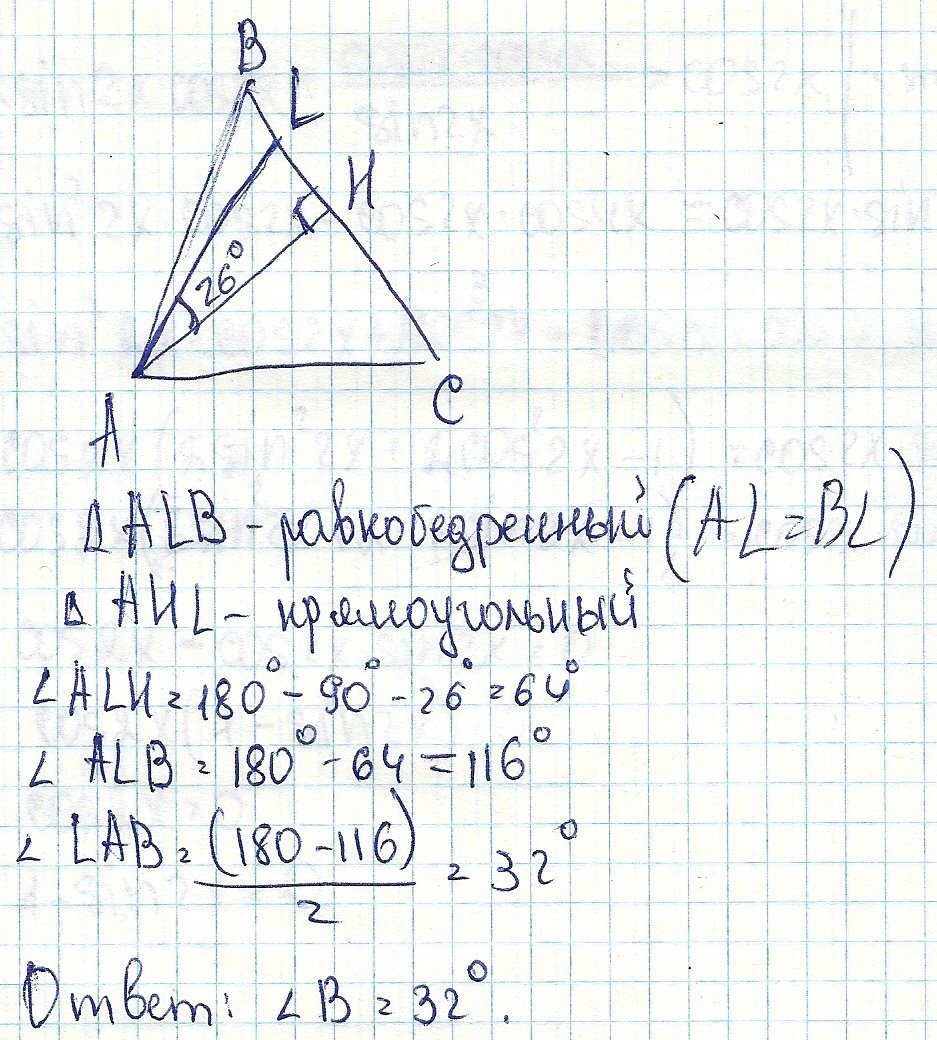 B
L
H
26°
A
C
Δ ALB - равнобедренный (AL=BL)
Δ AHL - прямоугольный
∠ALH = 180° - 90° - 26° = 64°
∠ ALB = 180° - 64 = 116°
∠ LAB = (180 - 116) / 2 = 32°
Ответ: ∠B = 32°.